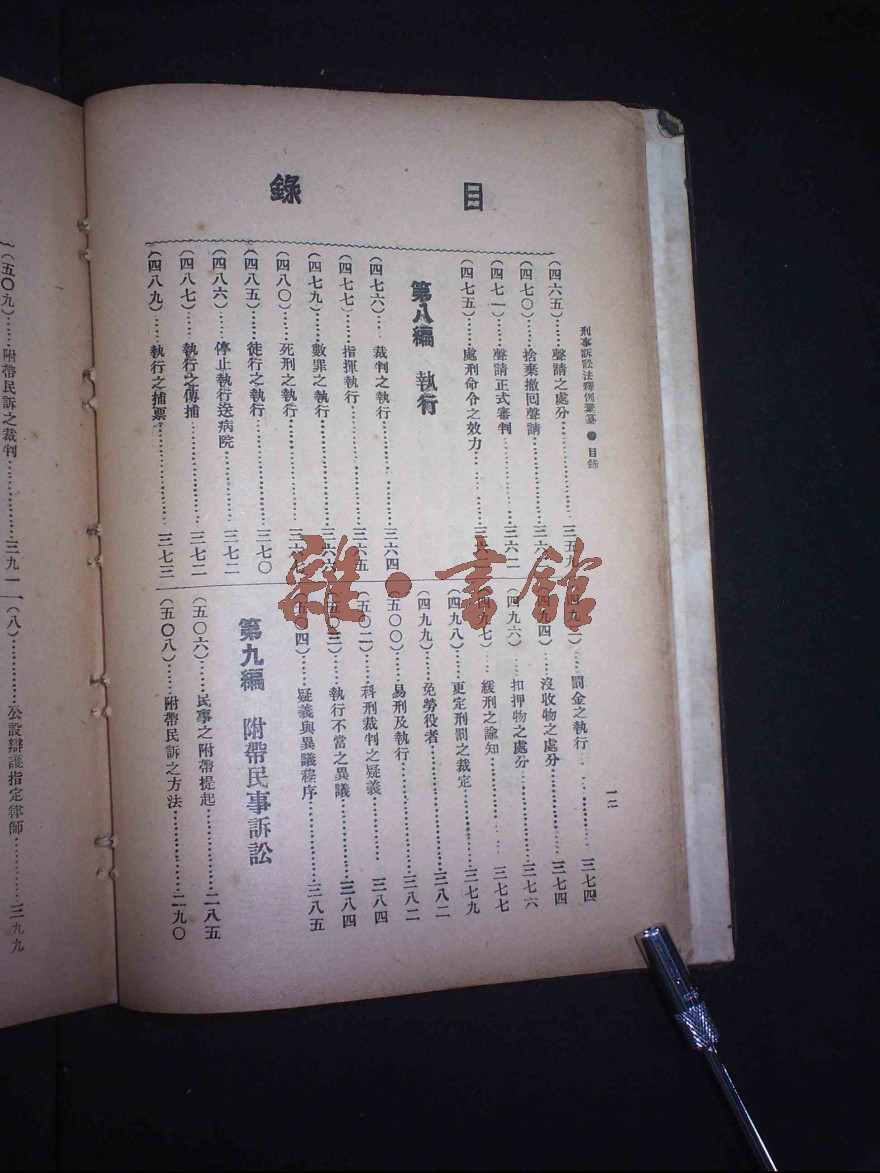 刑事訴訟法釋例彙纂 目錄
一二
目錄
(四六五)……聲請之處分……三五九
(四七〇)……捨棄撤回聲請……三六
(四七一)……聲請正式審判……三六二
(四七五)……處刑命令之效力……三六
第八編 執行
(四七六)……裁判之執行……三六四
(四七七)……指揮執行……三六五
(四七九)……數罪之執行……三六六
(四八〇)……死刑之執行……三六七
(四八五)……徒行之執行……三七〇
(四八六)……停止執行送病院……三七二
(四八七)……執行之傳捕……三七二
(四八九)……執行之捕票……三七三
罰金之執行……三七四
(四九四)……沒收物之處分……三七四
(四九六)……扣押物之處分……三七六
(四九七)……緩刑之諭知……三七七
(四九八)……更定刑罰之裁定……三七九
(四九九)……免勞役者……三八二
(五〇〇)……易刑及執行……三八二
(五〇二)……科刑裁判之疑義……三八四
(五〇三)……執行不當之異議……三八四
(五〇四)……疑義與異議程序……三八五
第九編 附帶民事訴訟
(五〇六)……民事之附帶提起……二八五
(五〇八)……附帶民訴之方法……二九〇
(五〇九)……附帶民訴之裁判……三九一
(八)……公設辯護指定律師……三九九
雜·書館